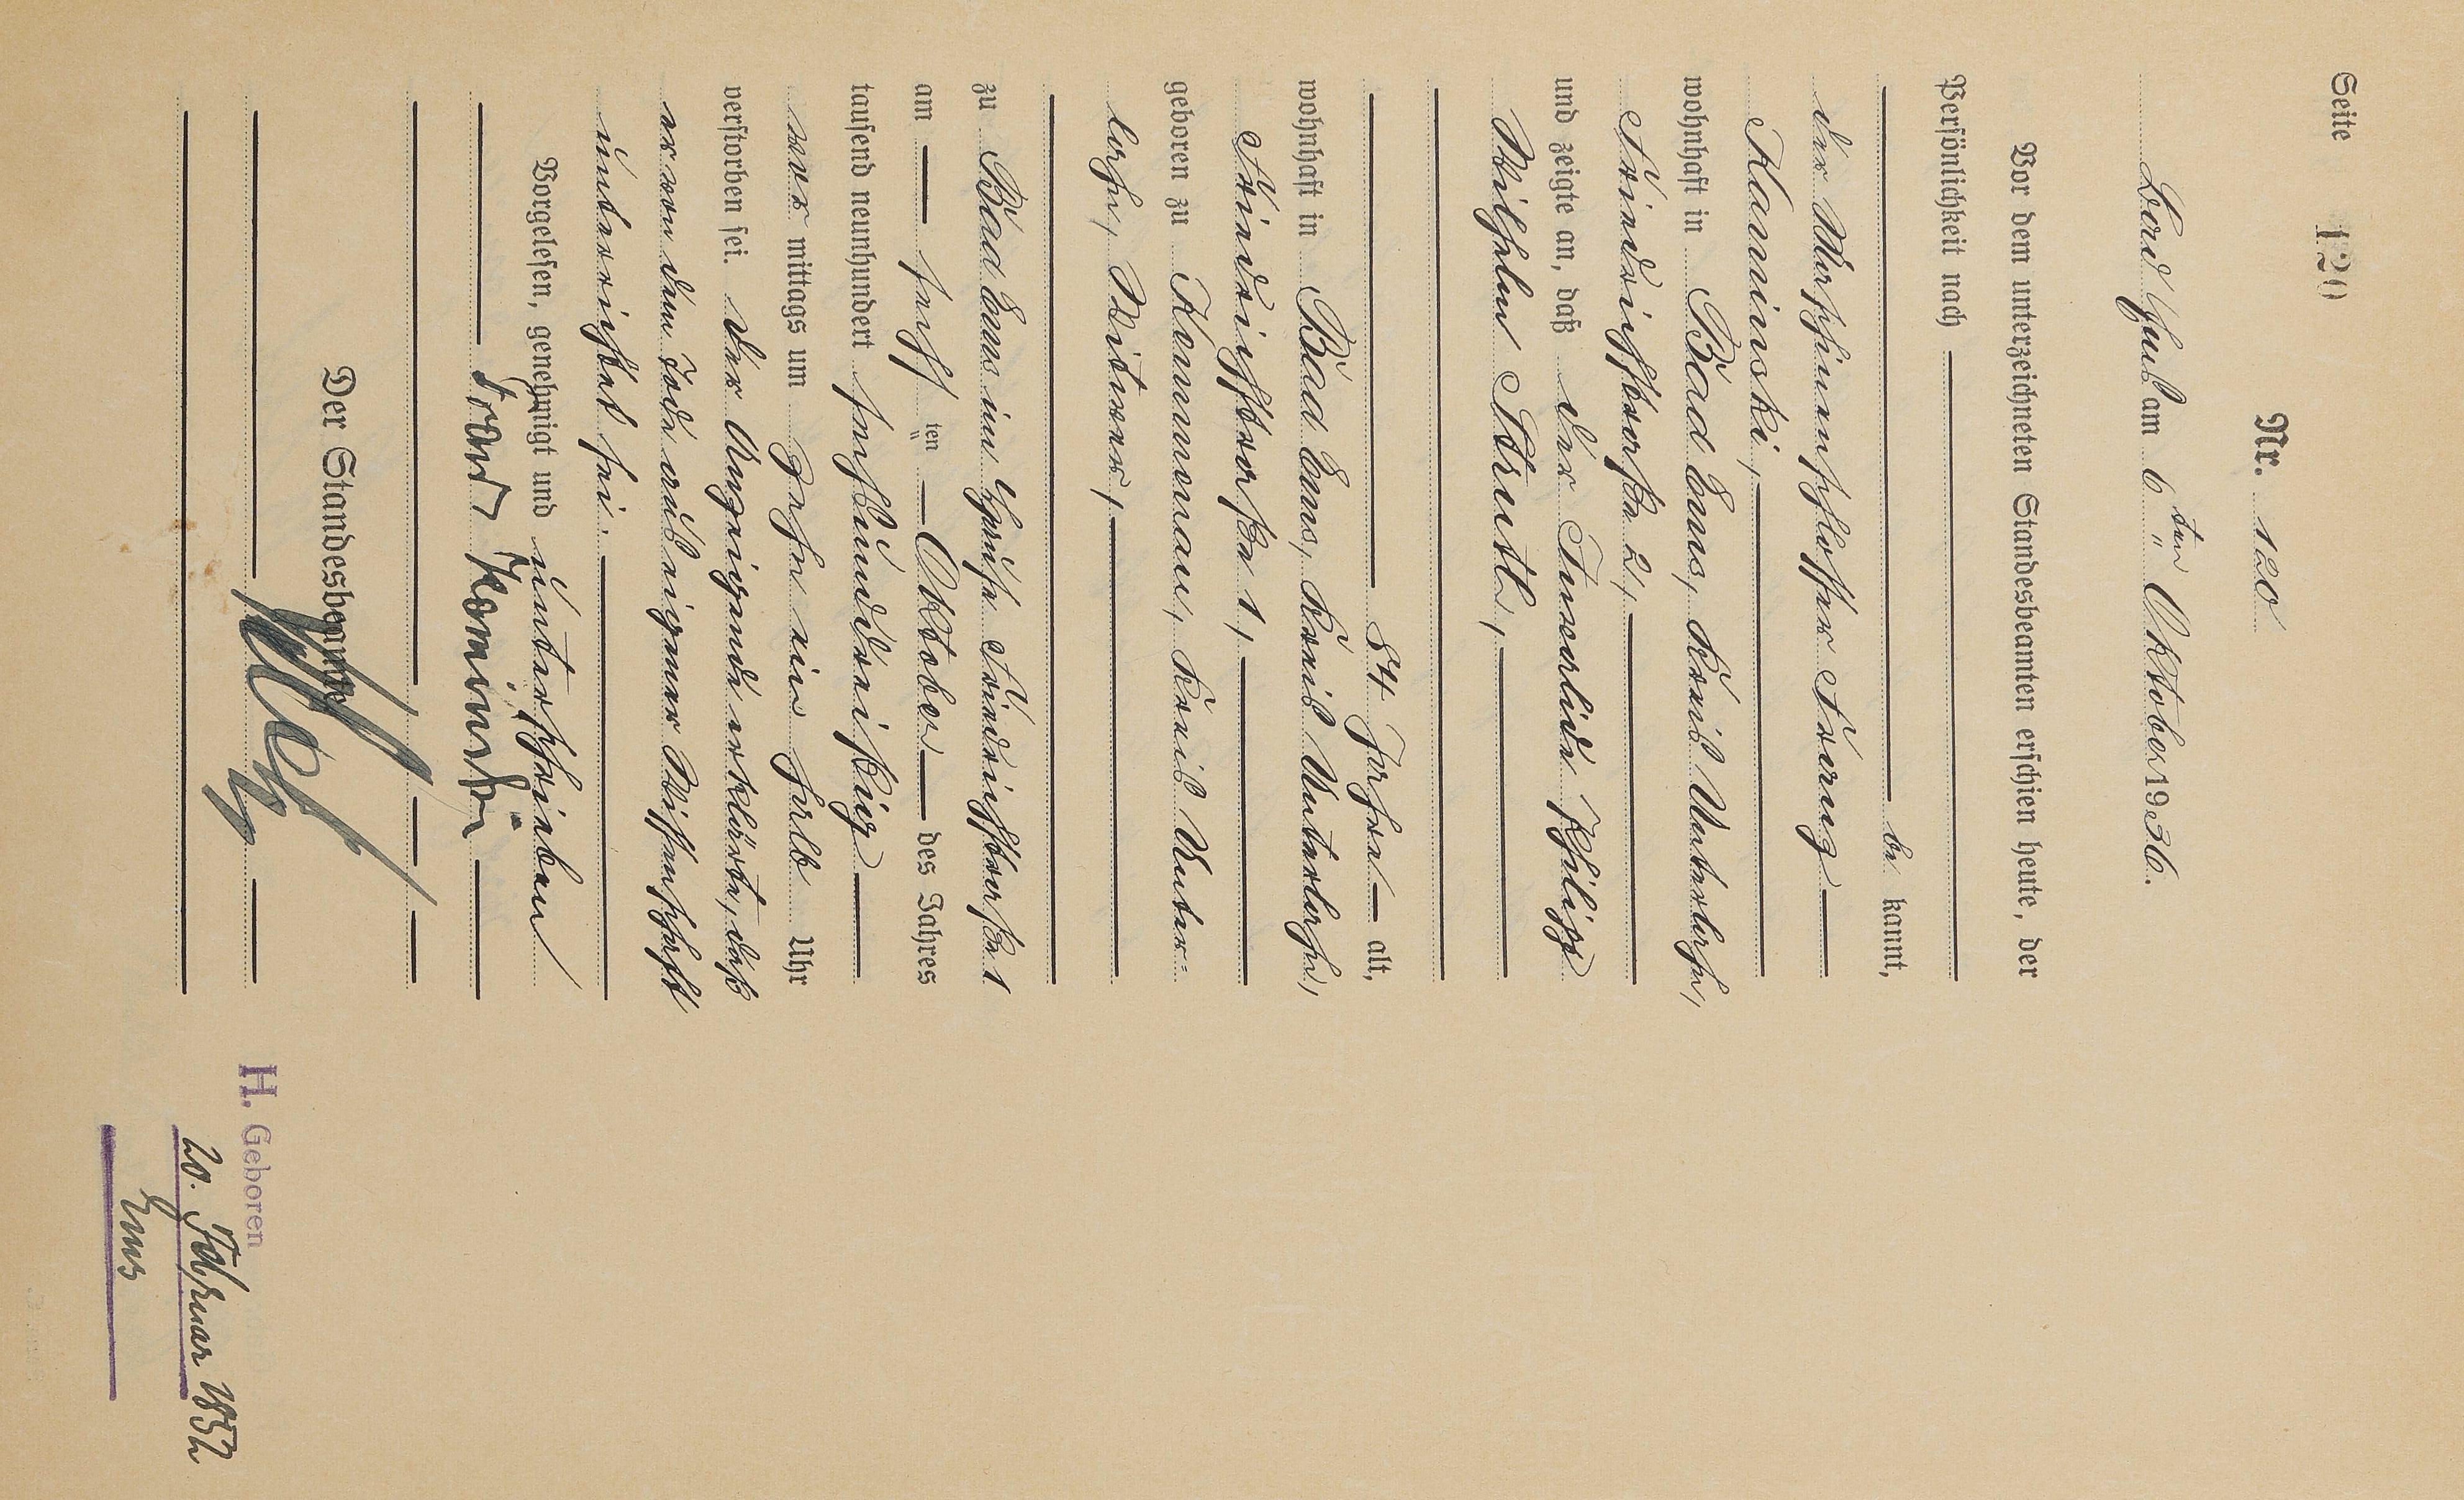 Seite 120
Nr. 120
Bad Ems am 6ten Oktober 1936.
Vor dem unterzeichneten Standesbeamten erschien heute, der
Persönlichkeit nach
be kannt,
der Maschinenschlosser Franz
Kaminski,
wohnhaft in Bad Ems, Kreis Unterlahn,
Friedrichstraße 2,
und zeigte an, daß der Invalide Philipp
Wilhelm Strutt,
84 Jahre alt,
wohnhaft in Bad Ems, Kreis Unterlahn,
Friedrichstraße 1,
geboren zu Kemmenau, Kreis Unter-
lahn, Witwer,
zu Bad Ems im Hause Friedrichstraße 1
am sechsten Oktober des Jahres
tausend neunhundert sechsunddreißig
vor mittags um zehn ein halb Uhr
verstorben sei. Der Anzeigende erklärte, daß
er von dem Tode aus eigener Wissenschaft
unterrichtet sei.
Vorgelesen, genehmigt und unterschrieben
Franz Kaminski
Der Standesbeamte
H. Geboren
20. Februar 1852
Ems